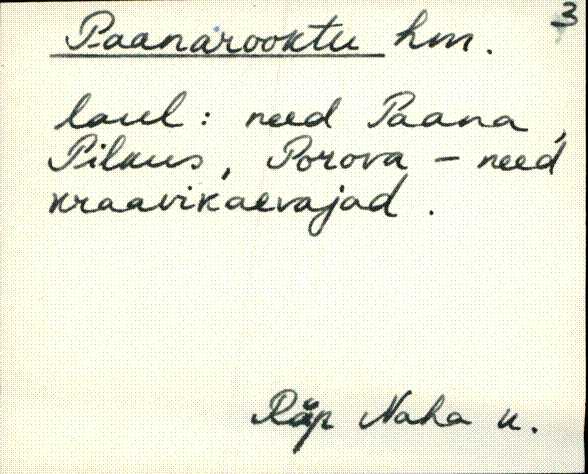 3
Paanarooktu hm.
laul: need Paana,
Pilkus, Porova – need
kraavikaevajad.
Räp Naha k.